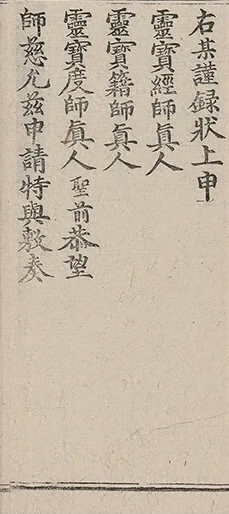 右某謹録狀上申
靈寶經師眞人
靈寶籍師眞人
靈寶度師眞人聖前恭望
師慈允兹申請特與敷奏